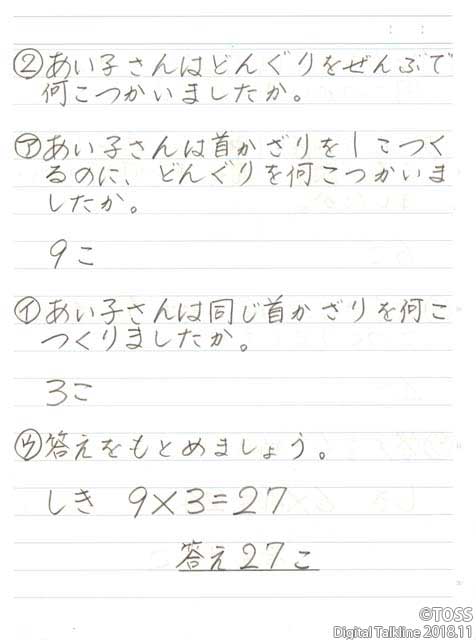 ②あい子さんはどんぐりをぜんぶで
何こつかいましたか。
㋐あい子さんは首かざりを1こつく
るのに、どんぐりを何こつかいま
したか。
9こ
㋑あい子さんは同じ首かざりを何こ
つくりましたか。
3こ
㋒答えをもとめましょう。
しき 9×3=27
答え27こ
©TOSS
Digital Talkline 2018.11